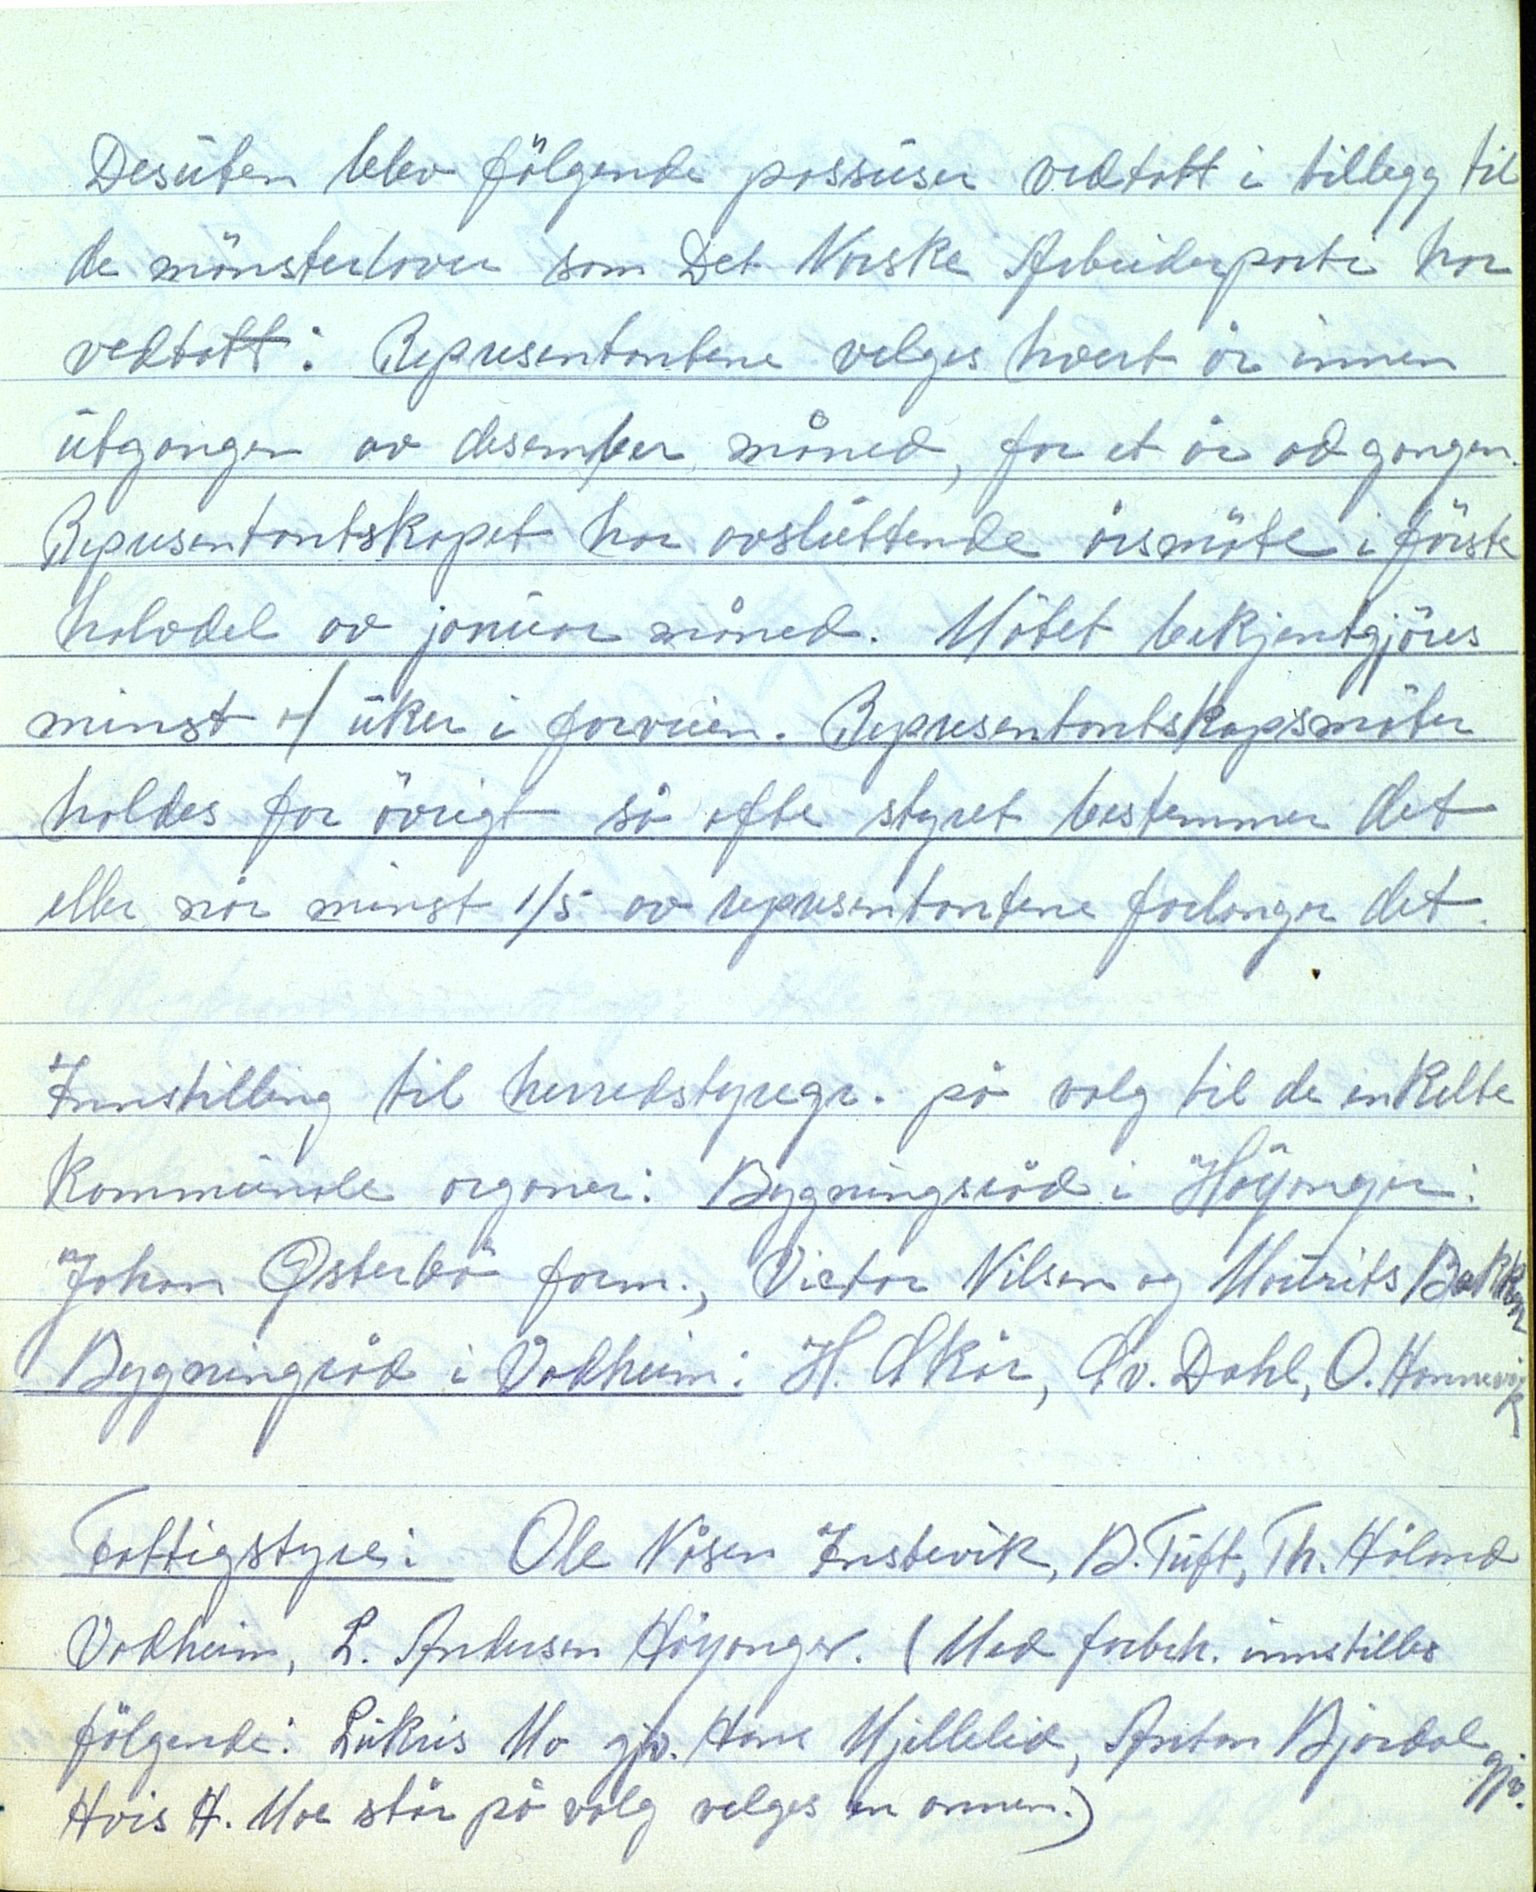 Desuten blev fölgende passuser vedtatt i tillegg til
de mönsterlover som Det Norske Arbeiderparti har
vedtatt: Representantene velges hvert år innen
utgangen av desember måned, for et år ad gangen.
Representantskapet har avsluttende årsmöte i förste
halvdel av januar måned. Mötet bekjentgjöres
minst 4 uker i forveien. Representantskapsmöter
holdes for övrigt så ofte styret bestemmer det
eller når minst 1/5 av representantene forlanger det.
Innstilling til herredstyregr. på valg til de enkelte
kommunale organer: Bygningsråd i Höyanger:
Johan Østerbö form., Victor Nilsen og Mourits Bakken
Bygningsråd i Vadheim: H. Skår, Sv. Dahl, O. Hannevik
Fattigstyre: Ole Nåsen Instevik, B. Tuft, Th. Håland
Vadheim, L. Andersen Höyanger. (Med forbeh. innstilles
fölgende: Lukris Mo gjv. Hans Mjellelid, Anton Bjordal gjv.
Hvis H. Moe står på valg velges en annen.)